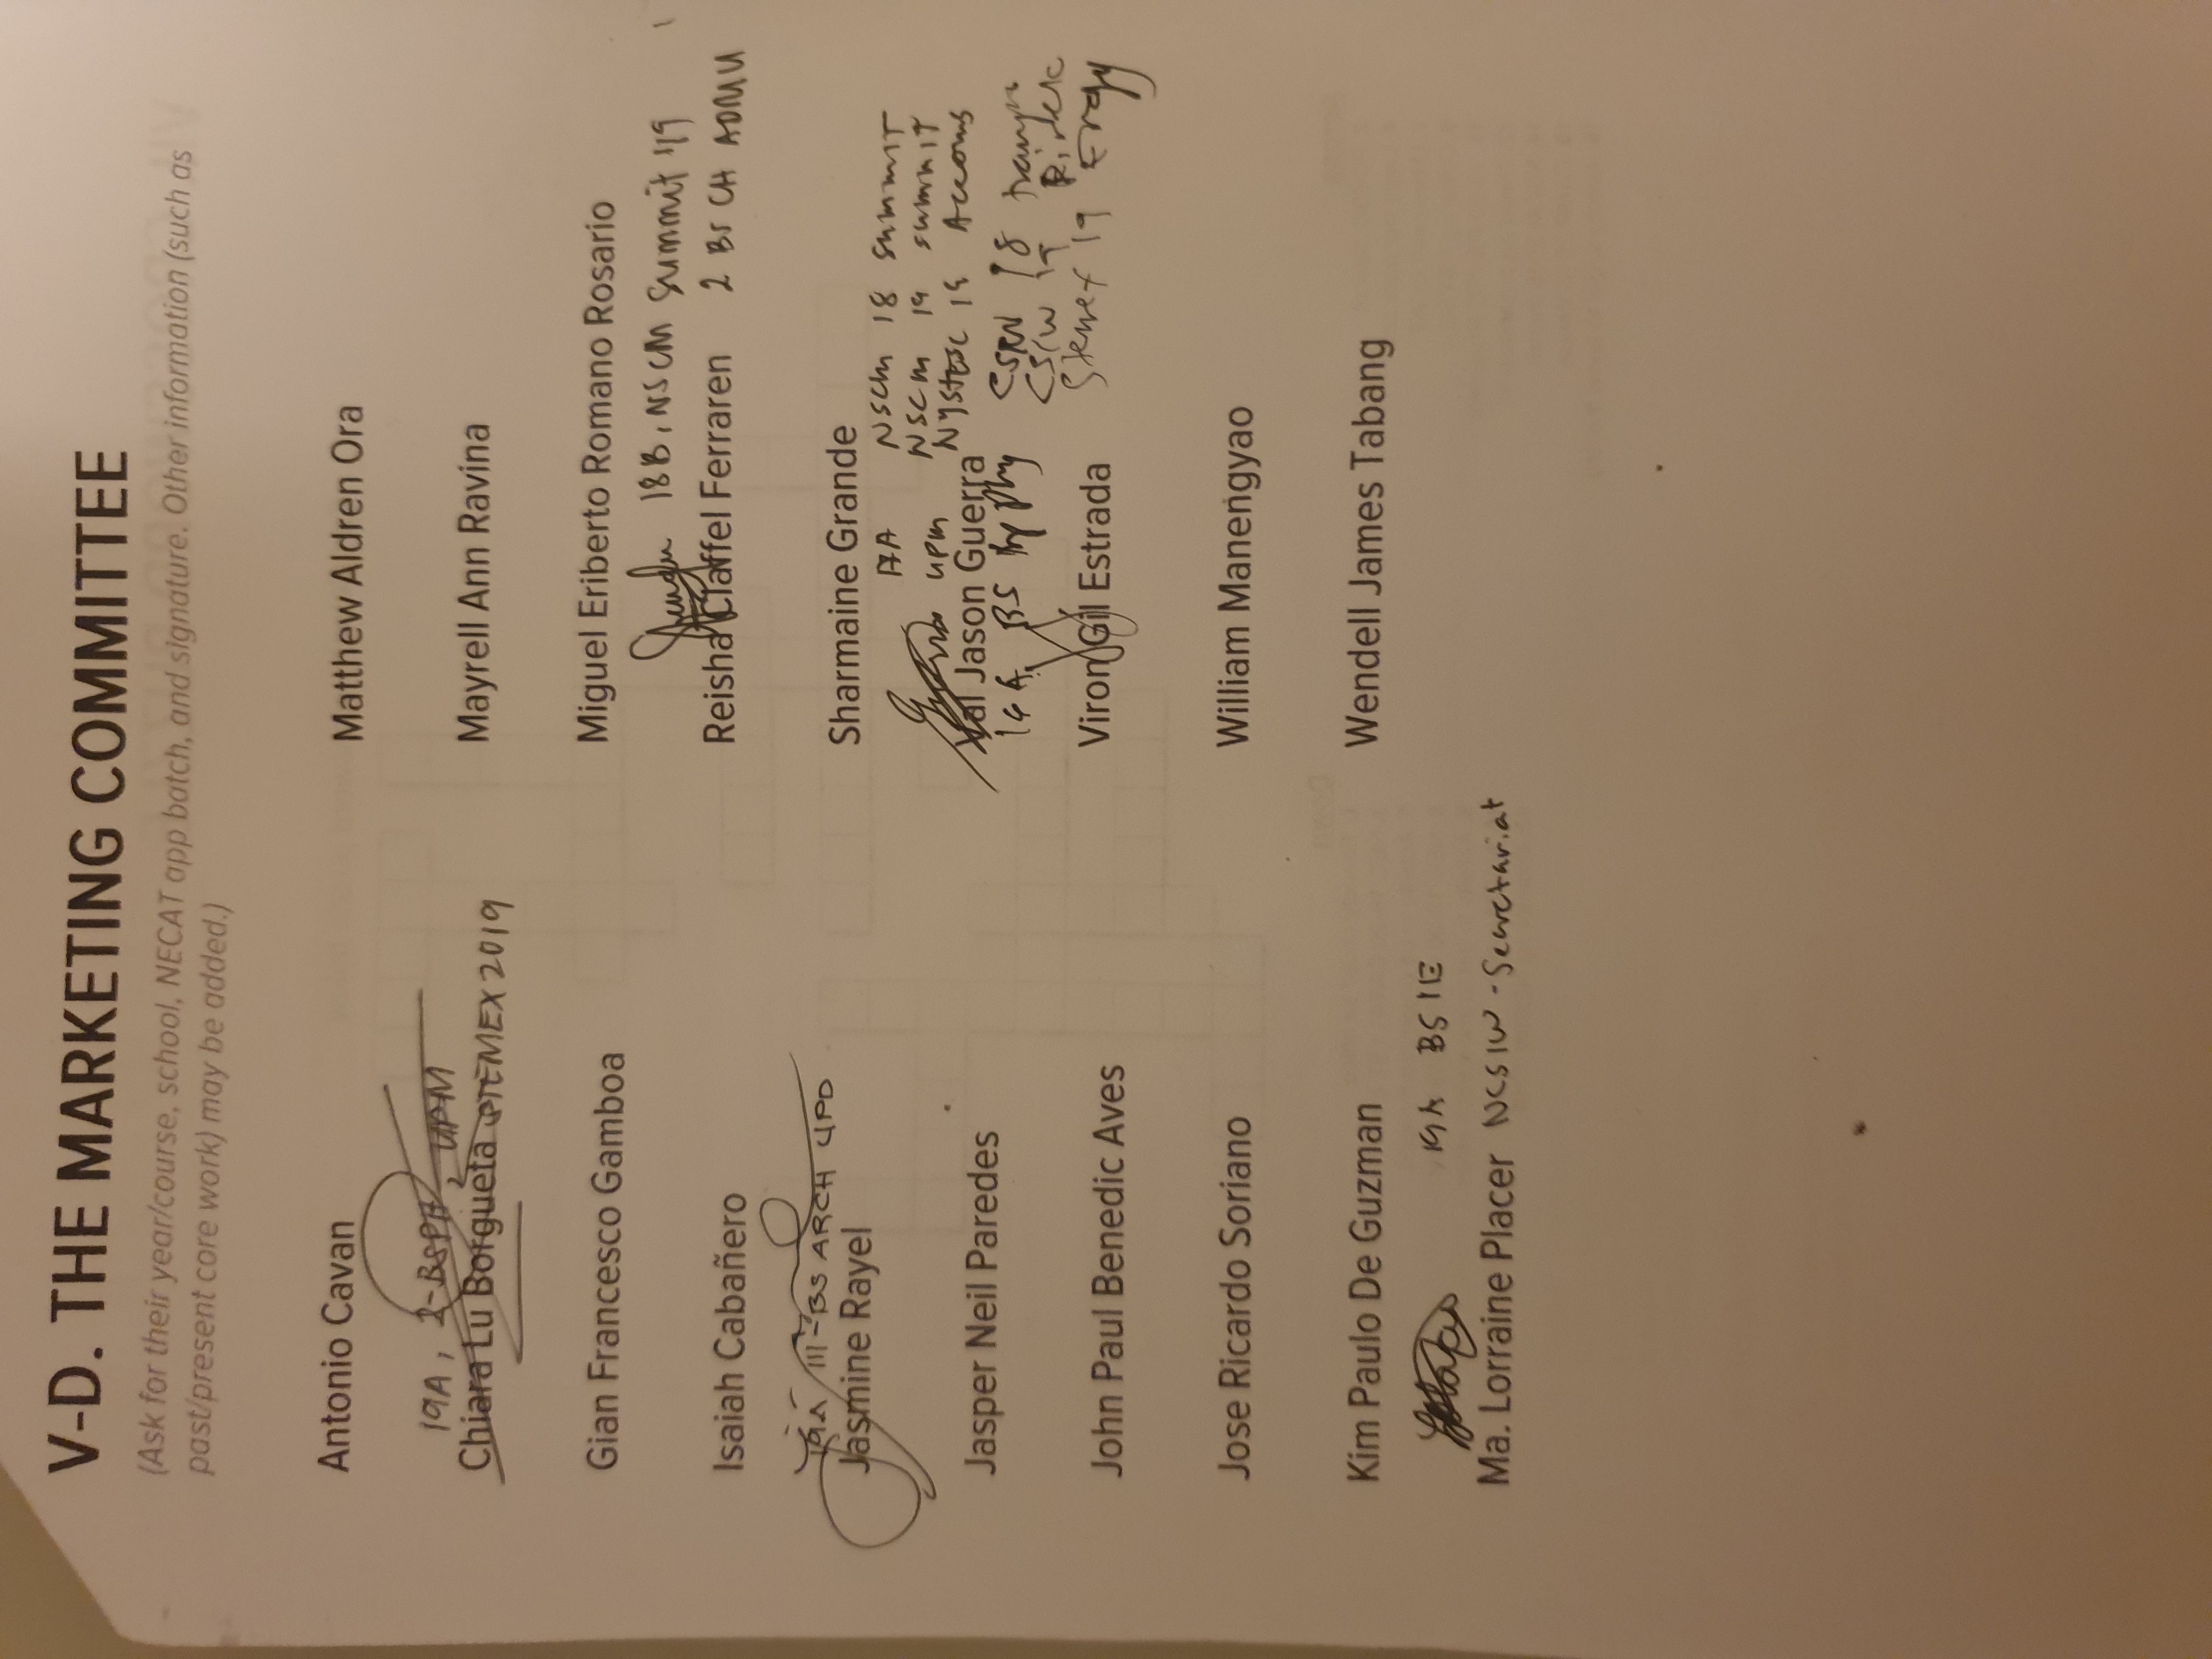 V-D. THE MARKETING COMMITTEE
(Ask for their year/course, school, NECAT app batch, and signature. Other information (such as
past/present core work) may be added.)
Antonio Cavan
19A, 2-BSPH, UPM
Chiara Lu Borgueta STEMEX 2019
Gian Francesco Gamboa
Isaiah Cabañero
19A / III-BS ARCH UPD
Jasmine Rayel
Jasper Neil Paredes
John Paul Benedic Aves
Jose Ricardo Soriano
Kim Paulo De Guzman
19A BS IE
Ma. Lorraine Placer NCSIW - Secretariat
Matthew Aldren Ora
Mayrell Ann Ravina
Miguel Eriberto Romano Rosario
18B, NSCM Summit '19
Reisha Claffel Ferraren 2 BS CH ADMU
Sharmaine Grande
17A NSCM 18 summit
UPM NSCM 19 summit
Val Jason Guerra NYSTESC 19 Accoms
19A, BS
Viron Gil Estrada
William Manengyao
Wendell James Tabang